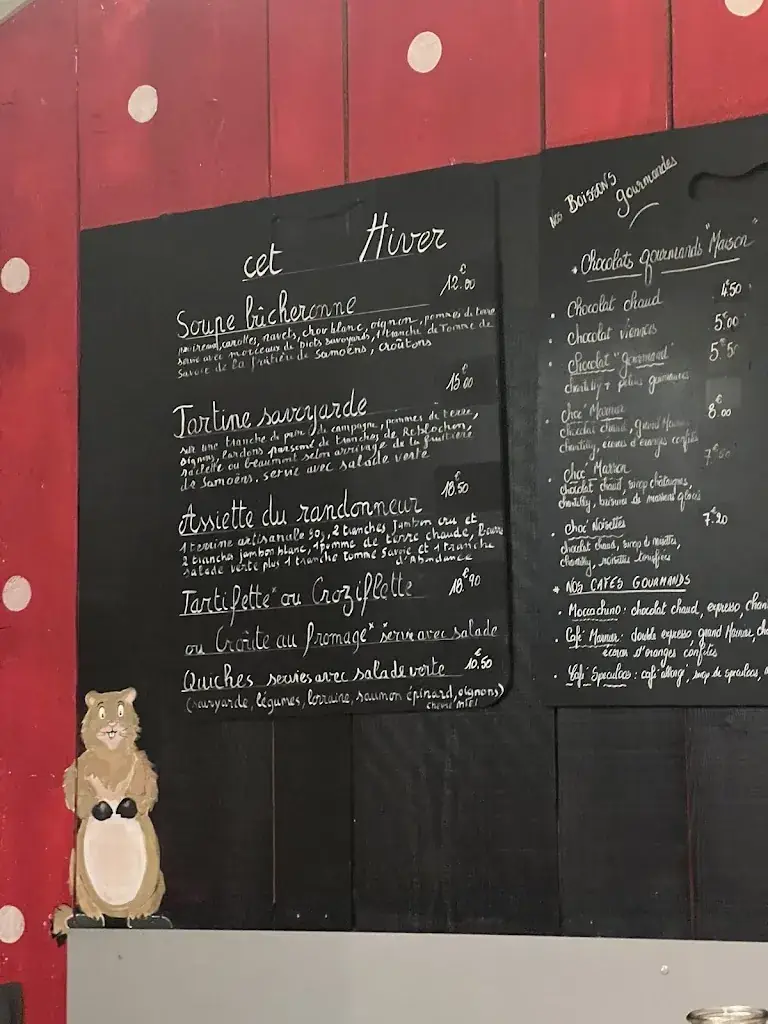 cet Hiver
Soupe bûcheronne 12.€00
poireaux, carottes, navets, chou blanc, oignon, pommes de terre
servie avec morceaux de diots savoyards, 1 tranche de Tomme de
Savoie de la fruitière de Samoëns, croûtons
Tartine savoyarde 15€00
sur une tranche de pain de campagne, pommes de terre,
oignons, lardons parsemé de tranches de Reblochon,
raclette ou beaumont selon arrivage de la fruitière
de Samoëns, servie avec salade verte
Assiette du randonneur 18.€50
1 terrine artisanale 50g, 2 tranches jambon cru et
2 tranches jambon blanc, 1 pomme de terre chaude, Beurre
salade verte plus 1 tranche tomme Savoie et 1 tranche
d'Abondance
Tartiflette* ou Croziflette 18.€90
ou Croûte au fromage* servie avec salade
Quiches servies avec salade verte 10.€50
(savoyarde, légumes, lorraine, saumon épinard, oignons)
chèvre miel
Nos BOISSONS
gourmandes
* Chocolats gourmands "Maison"
• Chocolat chaud 4€50
• chocolat viennois 5€00
• Chocolat "gourmand" 5€50
chantilly +
• Choc' Marnier 8.€00
chocolat chaud, grand Marnier,
chantilly, écorces d'oranges confites
• Choc' Marron
chocolat chaud, sirop châtaignes,
chantilly, brisures de marrons glacés
• Choc' Noisettes 7.€20
chocolat chaud, sirop de noisettes,
chantilly, noisettes torréfiées
* NOS CAFÉS GOURMANDS
• Moccachino : chocolat chaud, expresso, chan
• Café Marnier : double expresso grand Marnier, cha
écorces d'oranges confites
• Café Speculoos : café allongé, sirop de speculoos,